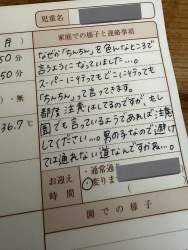 児童名
月)
家庭での様子と連絡事項
50分
50分
・無
36.7℃
なぜか「ちんちん」を色んなところで
言うようになっていました…。
スーパーに行ってもどこに行っても
「ちんちん」って言ってきます。
都度注意はしてるのですが、もし
園でも言っているようであれば注意
してください…。男の子なので避け
ては通れない道なんですかね…。
お迎え
時間
・通常通
変りま
園での様子